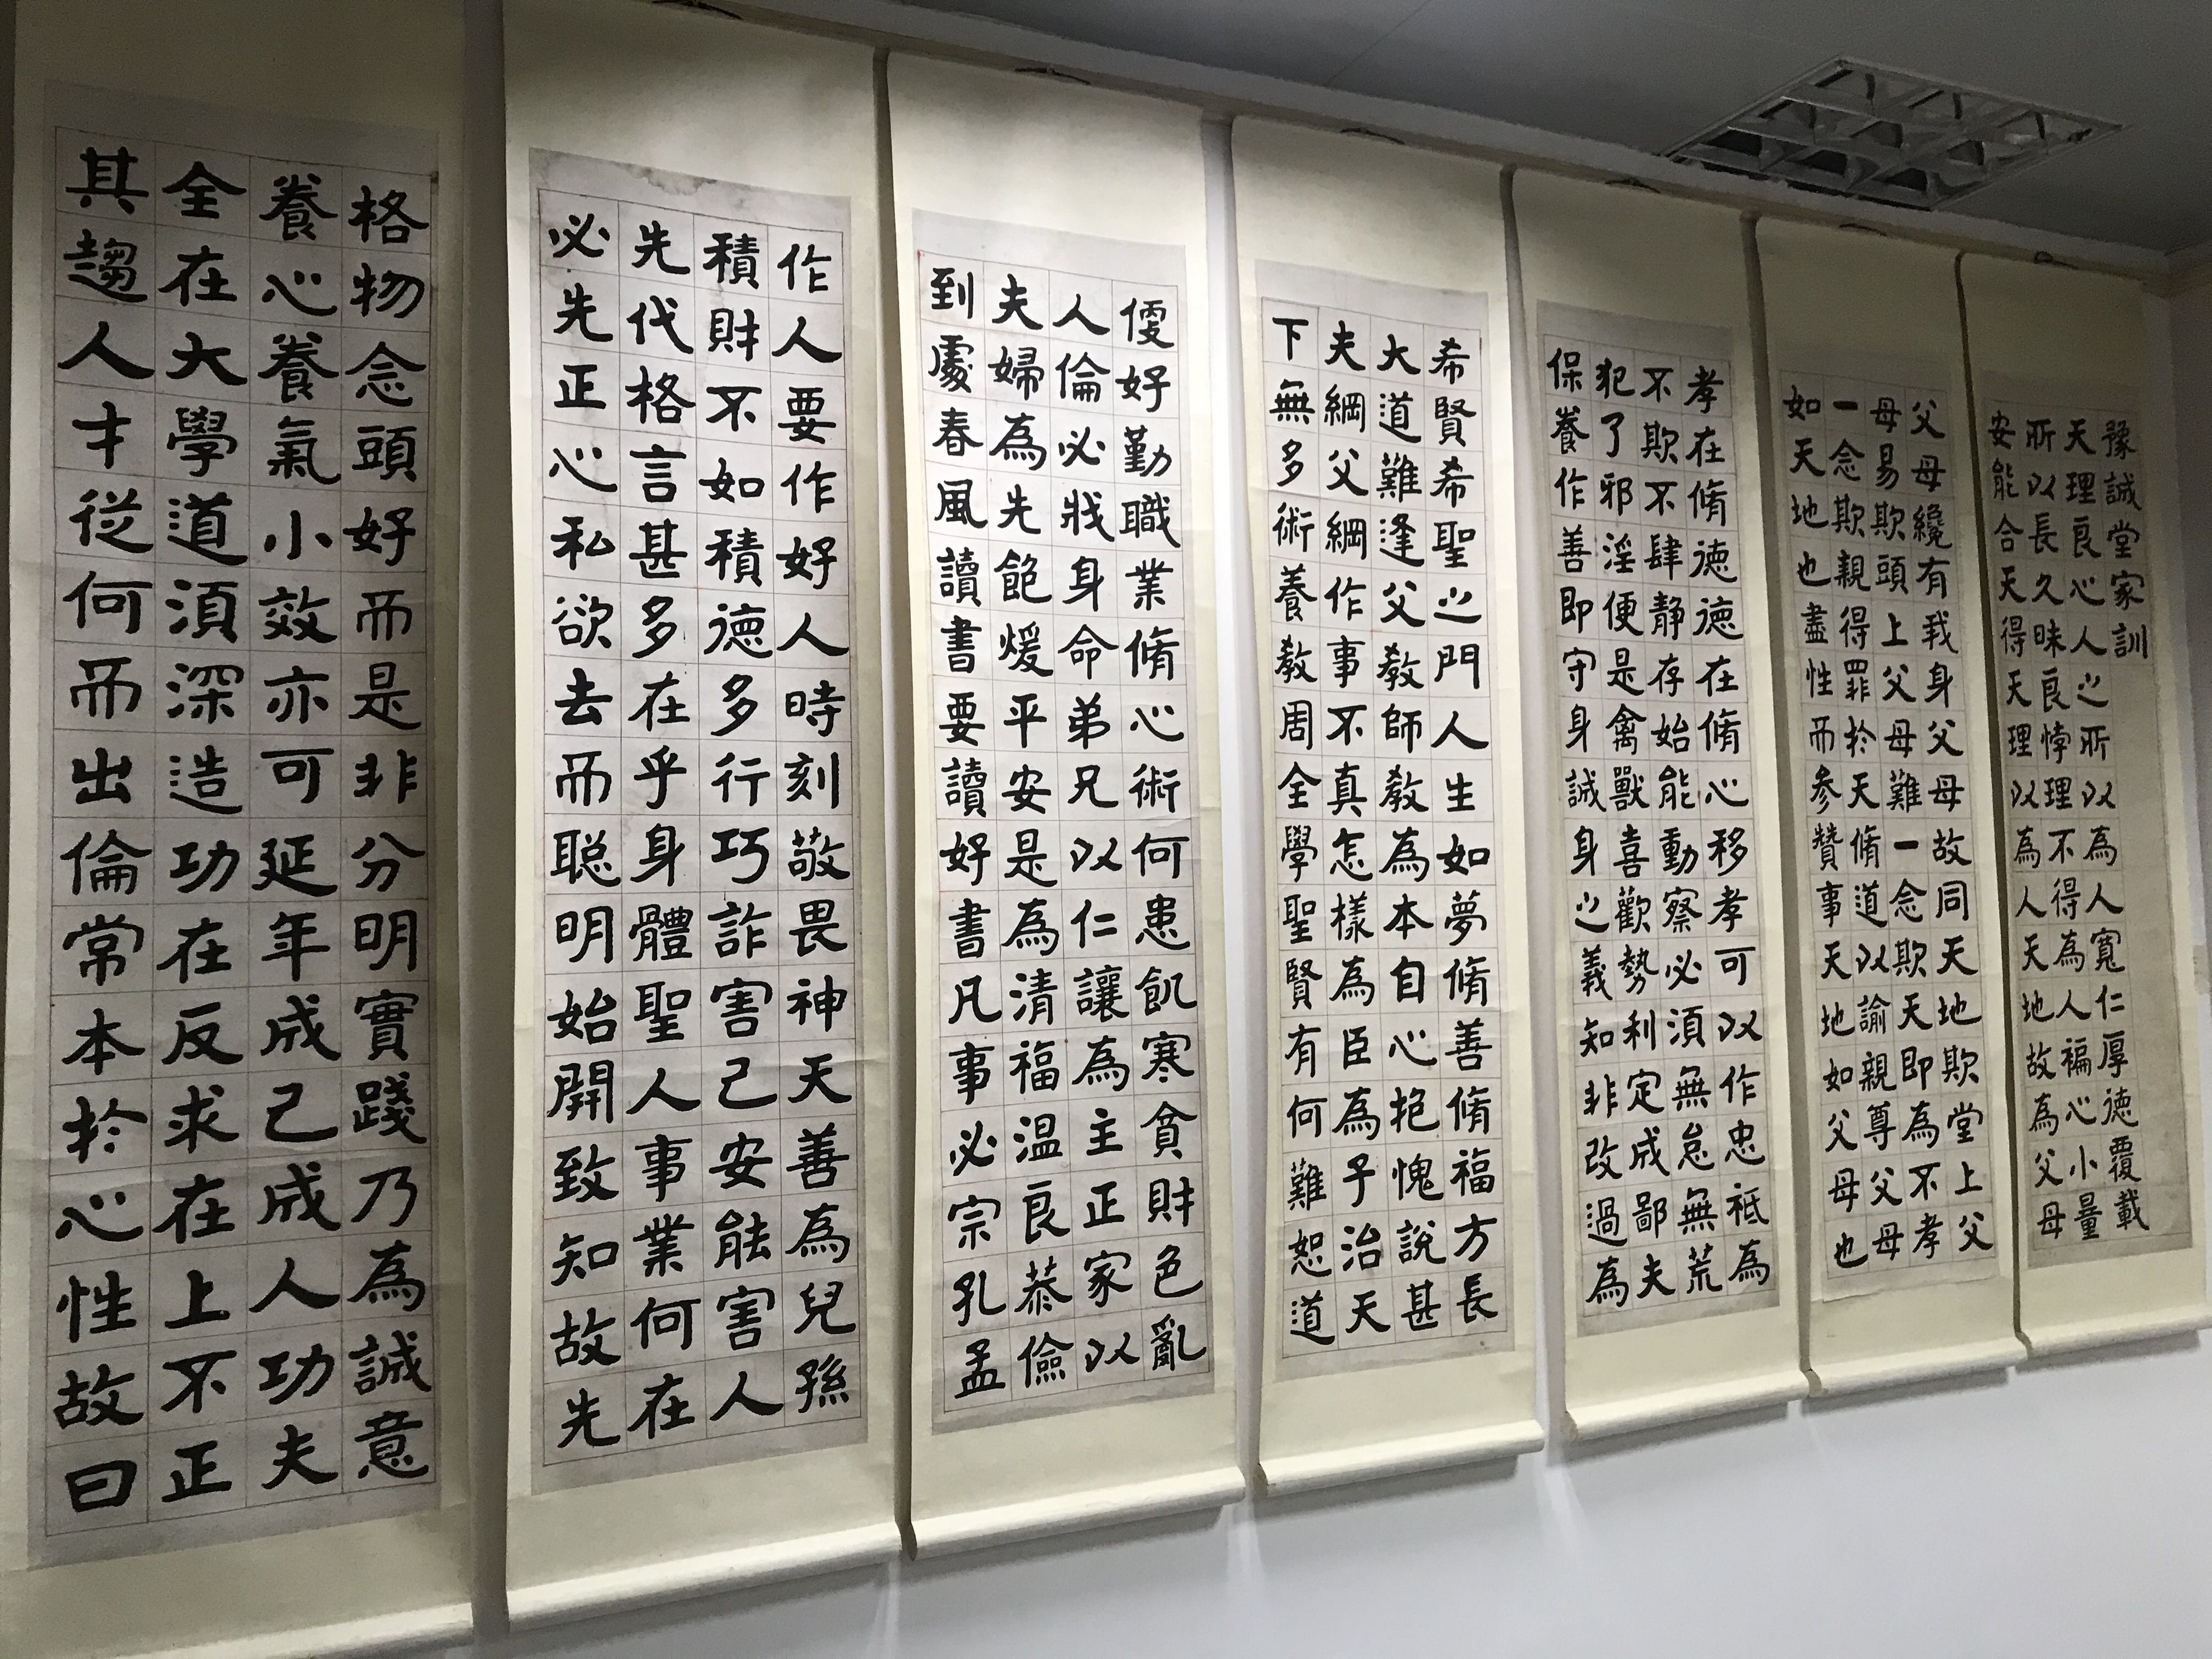 豫誠堂家訓
天理良心人之所以為人寬仁厚德覆載
所以長久昧良悖理不得為人褊心小量
安能合天得天理以為人天地故為父母
父母纔有我身父母故同天地欺堂上父
母易欺頭上父母難一念欺天即為不孝
一念欺親得罪於天脩道以諭親尊父母
如天地也盡性而參贊事天地如父母也
孝在脩德德在脩心移孝可以作忠祗為
不欺不肆静存始能動察必須無怠無荒
犯了邪淫便是禽獸喜歡勢利定成鄙夫
保養作善即守身誠身之義知非改過為
希賢希聖之門人生如夢脩善脩福方長
大道難逢父教師教為本自心抱愧說甚
夫綱父綱作事不真怎樣為臣為子治天
下無多術養教周全學聖賢有何難恕道
好勤職業脩心術何患飢寒貪財色亂
人倫必戕身命弟兄以仁讓為主正家以
夫婦為先飽煖平安是為清福温良恭儉
到處春風讀書要讀好書凡事必宗孔孟
作人要作好人時刻敬畏神天善為兒孫
積財不如積德多行巧詐害己安能害人
先代格言甚多在乎身體聖人事業何在
必先正心私欲去而聰明始開致知故先
格物念頭好而是非分明實踐乃為誠意
養心養氣小效亦可延年成己成人功夫
全在大學道須深造功在反求在上不正
其趨人才從何而出倫常本於心性故曰